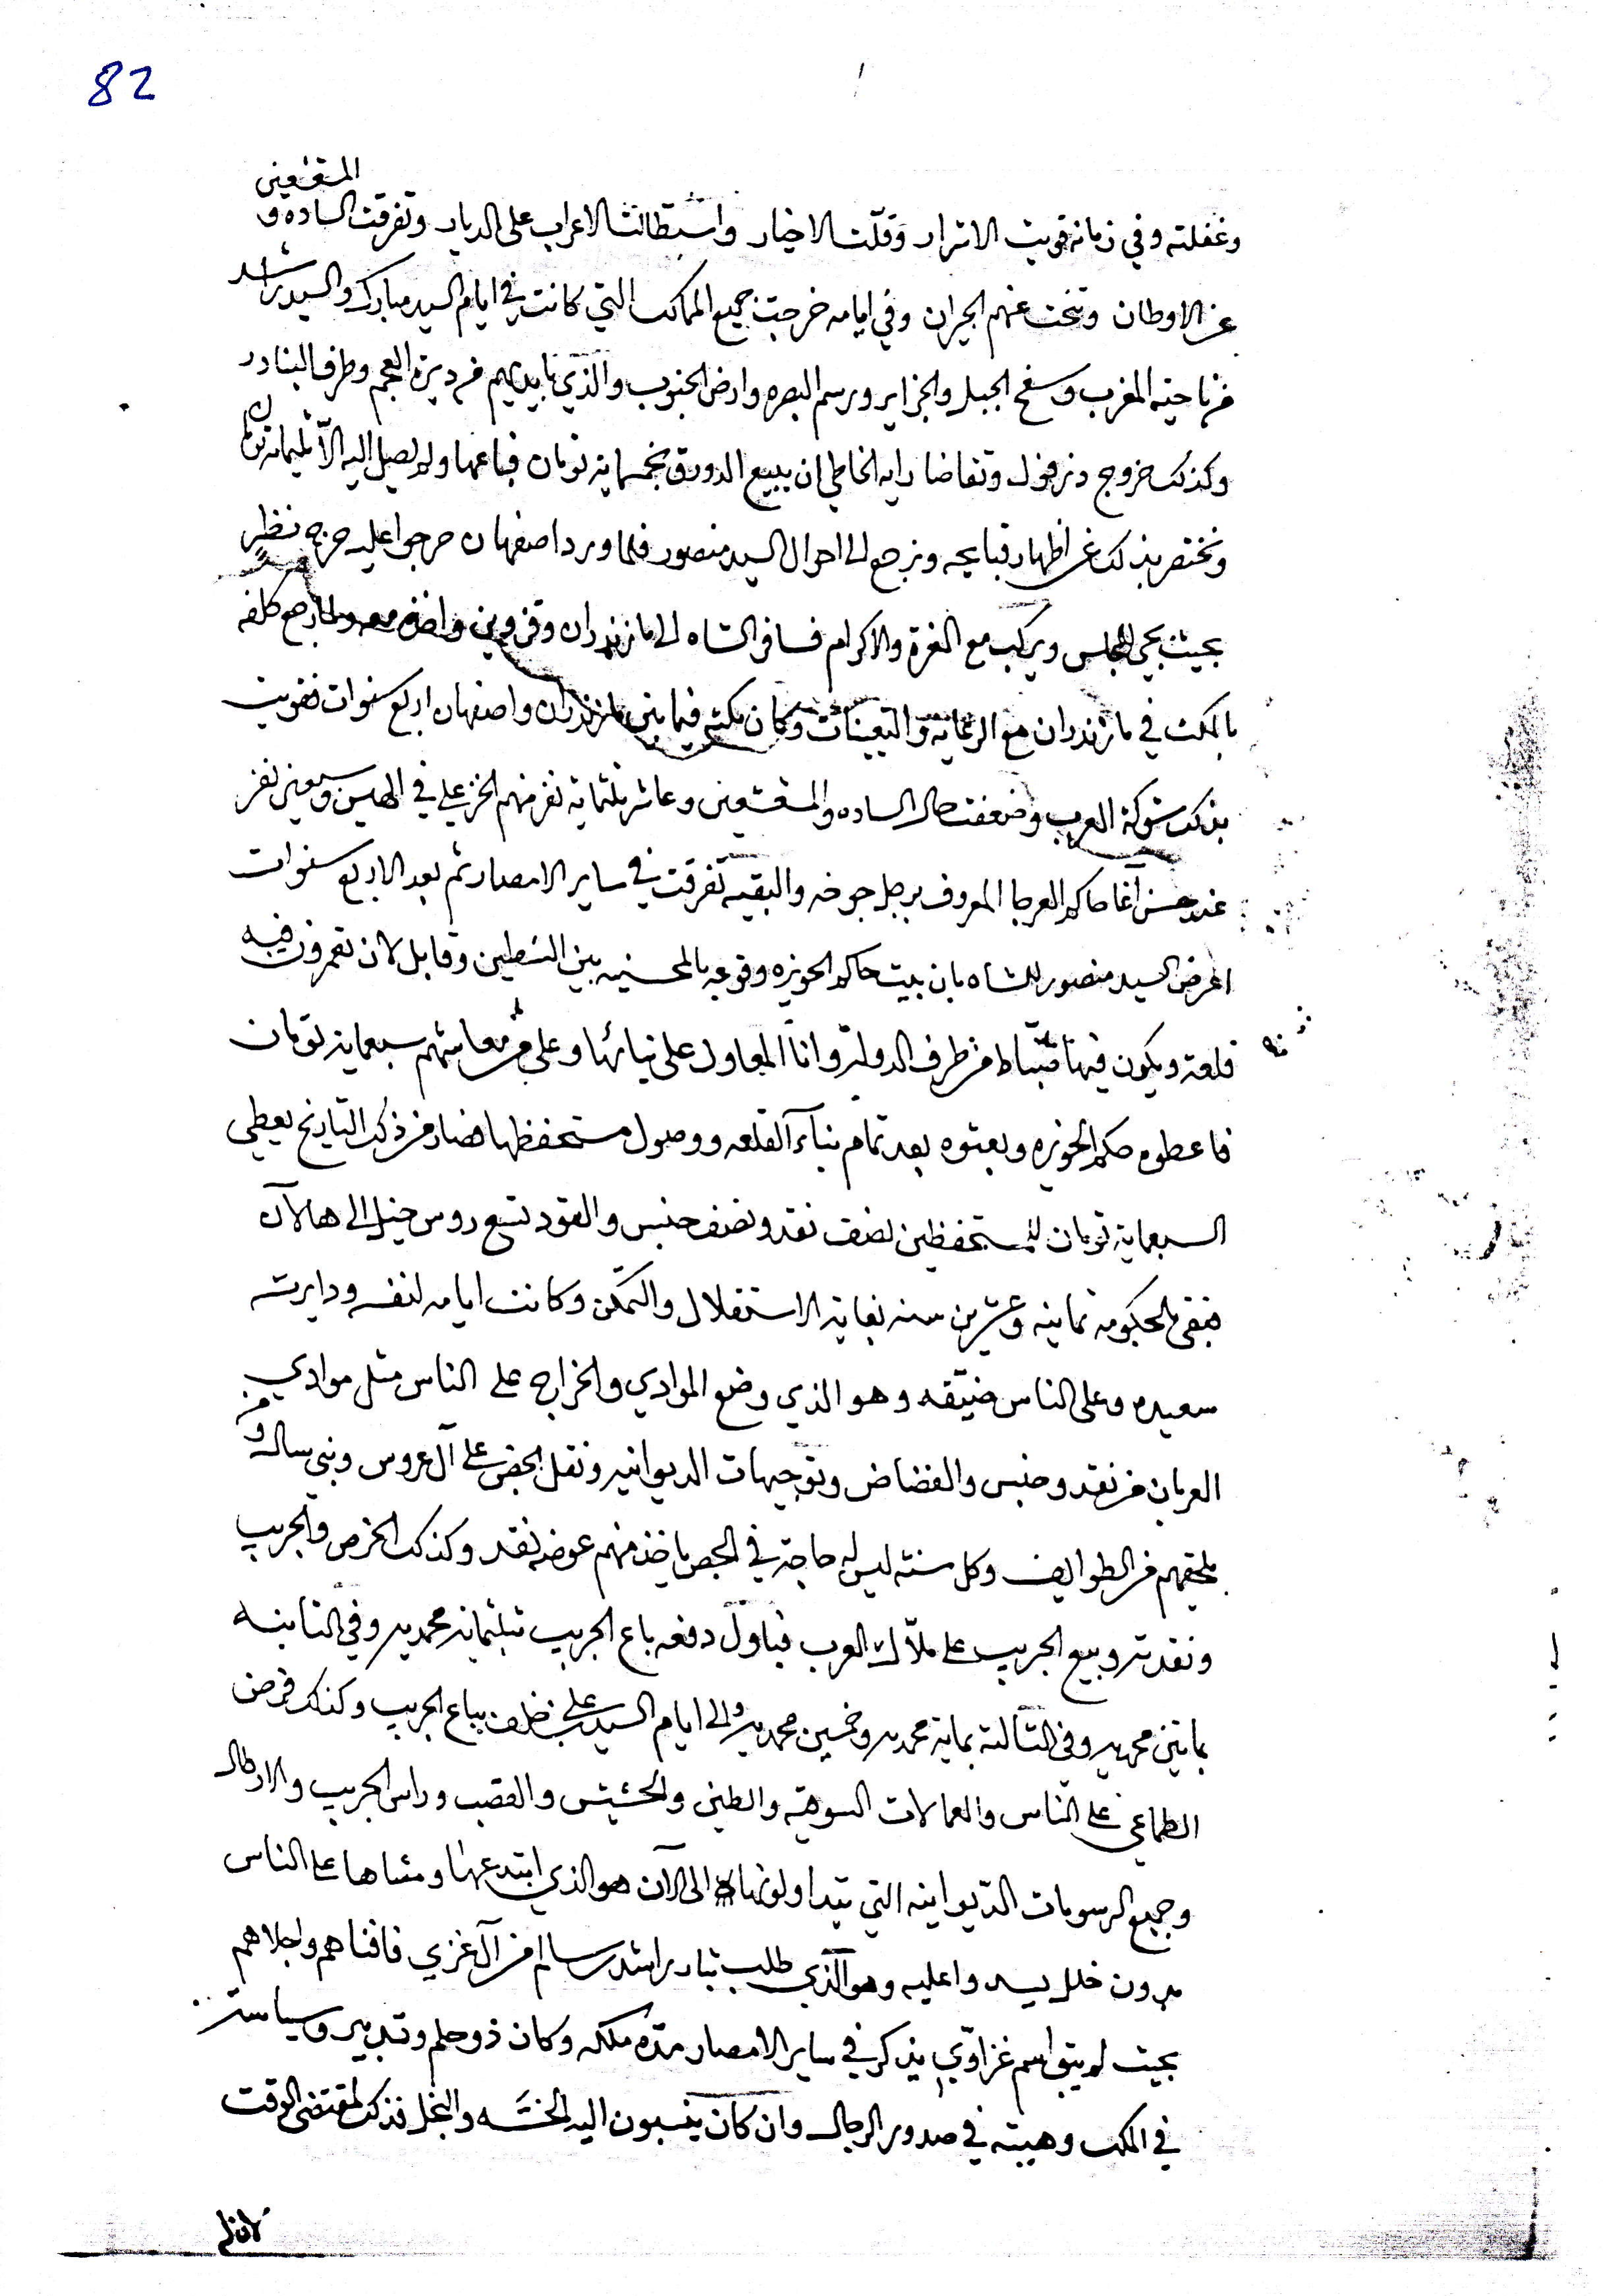 82
المتقشعين
وغفلته وفي زمانه قويت الاشرار وقلّت الاخيار واستطالت الاعراب على الديار وتفرقت الساده و
عن الاوطان وتنحت عنهم الجيران وفي ايامه خرجت جميع الممالك التي كانت في ايام السيد مبارك والسيد راشد
من ناحية المغرب وسفح الجبل والجزاير ورسم البصره وارض الجنوب والذي بايديهم من ديرة العجم وطرف البنادر
وكذلك خروج دزفول وتقاضا رايه الخاطي ان يبيع الدورق بخمسماية تومان فباعها ولم يصل اليه الّا ثلثماية تومان
ونختصر بذلك عن اظهار قبايحه ونرجع الى احوال السيد منصور فلما ورد اصفهان خرجوا عليه خرج نظر
بحيث يجي المجلس ويركب مع العزة والاكرام فسافر الشاه الى مازندران وقزوين واخذه معه ولما رجع كلفه
بالمكث في مازندران مع الرعايه والتعينات وكان مكثه فيما بين مازندران واصفهان اربع سنوات فقويت
بذلك شوكة العرب وضعفت حال الساده والمتقشعين وعاش ثلثماية نفر منهم الخزعلي في وسبعين نفر
عند حسن آغا حاكم العرجا المعروف برجل جوخه والبقيه تفرقت في ساير الامصار ثم بعد الاربع سنوات
اعرض السيد منصور للشاه بان بيت حاكم الحويزه وقوعه بالمحسنيه بين الشطين وقابل لان تعمرون فيه
قلعة ويكون فيها ضبّاط من طرف الدولة وانا المعاول على بنائها وعلي معاشهم سبعماية تومان
فاعطوه حكم الحويزه وبعثوه بعد تمام بنآء القلعه ووصول مستحفظها فصار من ذلك التاريخ يعطي
السبعماية تومان للمستحفظين نصف نقد ونصف جنس والقود تسع روس خيل الى هالآن
فبقى بالحكومه ثمانيه وعشرين سنه بغاية الاستقلال والتمكن وكانت ايامه لنفسه ودايرته
سعيده وعلى الناس ضيّقه وهو الذي وضع الموادي والخراج على الناس مثل موادي
العربان من نقد وجنس والفضاض وتوجيهات الديوانيه ونقل الجص على آل عروس وبني ساله ومن
يلحقهم من الطوايف وكل سنة ليس له حاجة في الجص ياخذ منهم عوضه نقد وكذلك الخرص والجريب
ونقدته وبيع الجريب على ملّاك العرب فباول دفعه باع الجريب بثلثماية محمديه وفي الثانيه
بمايتين محمديه وفي الثالثة بماية محمديه وخمسين محمديه والى ايام السيد علي بن خلف يباع الجريب وكذلك فرض
الطماعي على الناس والعمالات السوقيه والطين والحشيش والقصب وراس الجريب
وجميع الرسومات الديوانيه التي يتداولونها الى الآن هو الذي ابتدعها ومشاها على الناس
بدون خلل يبدوا عليه وهو الّذي طلب بثار راشد بن سالم من آل غزي فافناهم واجلاهم
بحيث لم يبق اسم غزاوّي يذكر في ساير الامصار مدّه ملكه وكان ذو حلم وتدبير وسياسة
في الملك وهيبته في صدور الرجال وان كان ينسبون اليه الخسّه والبخل فذلك لمقتضى الوقت